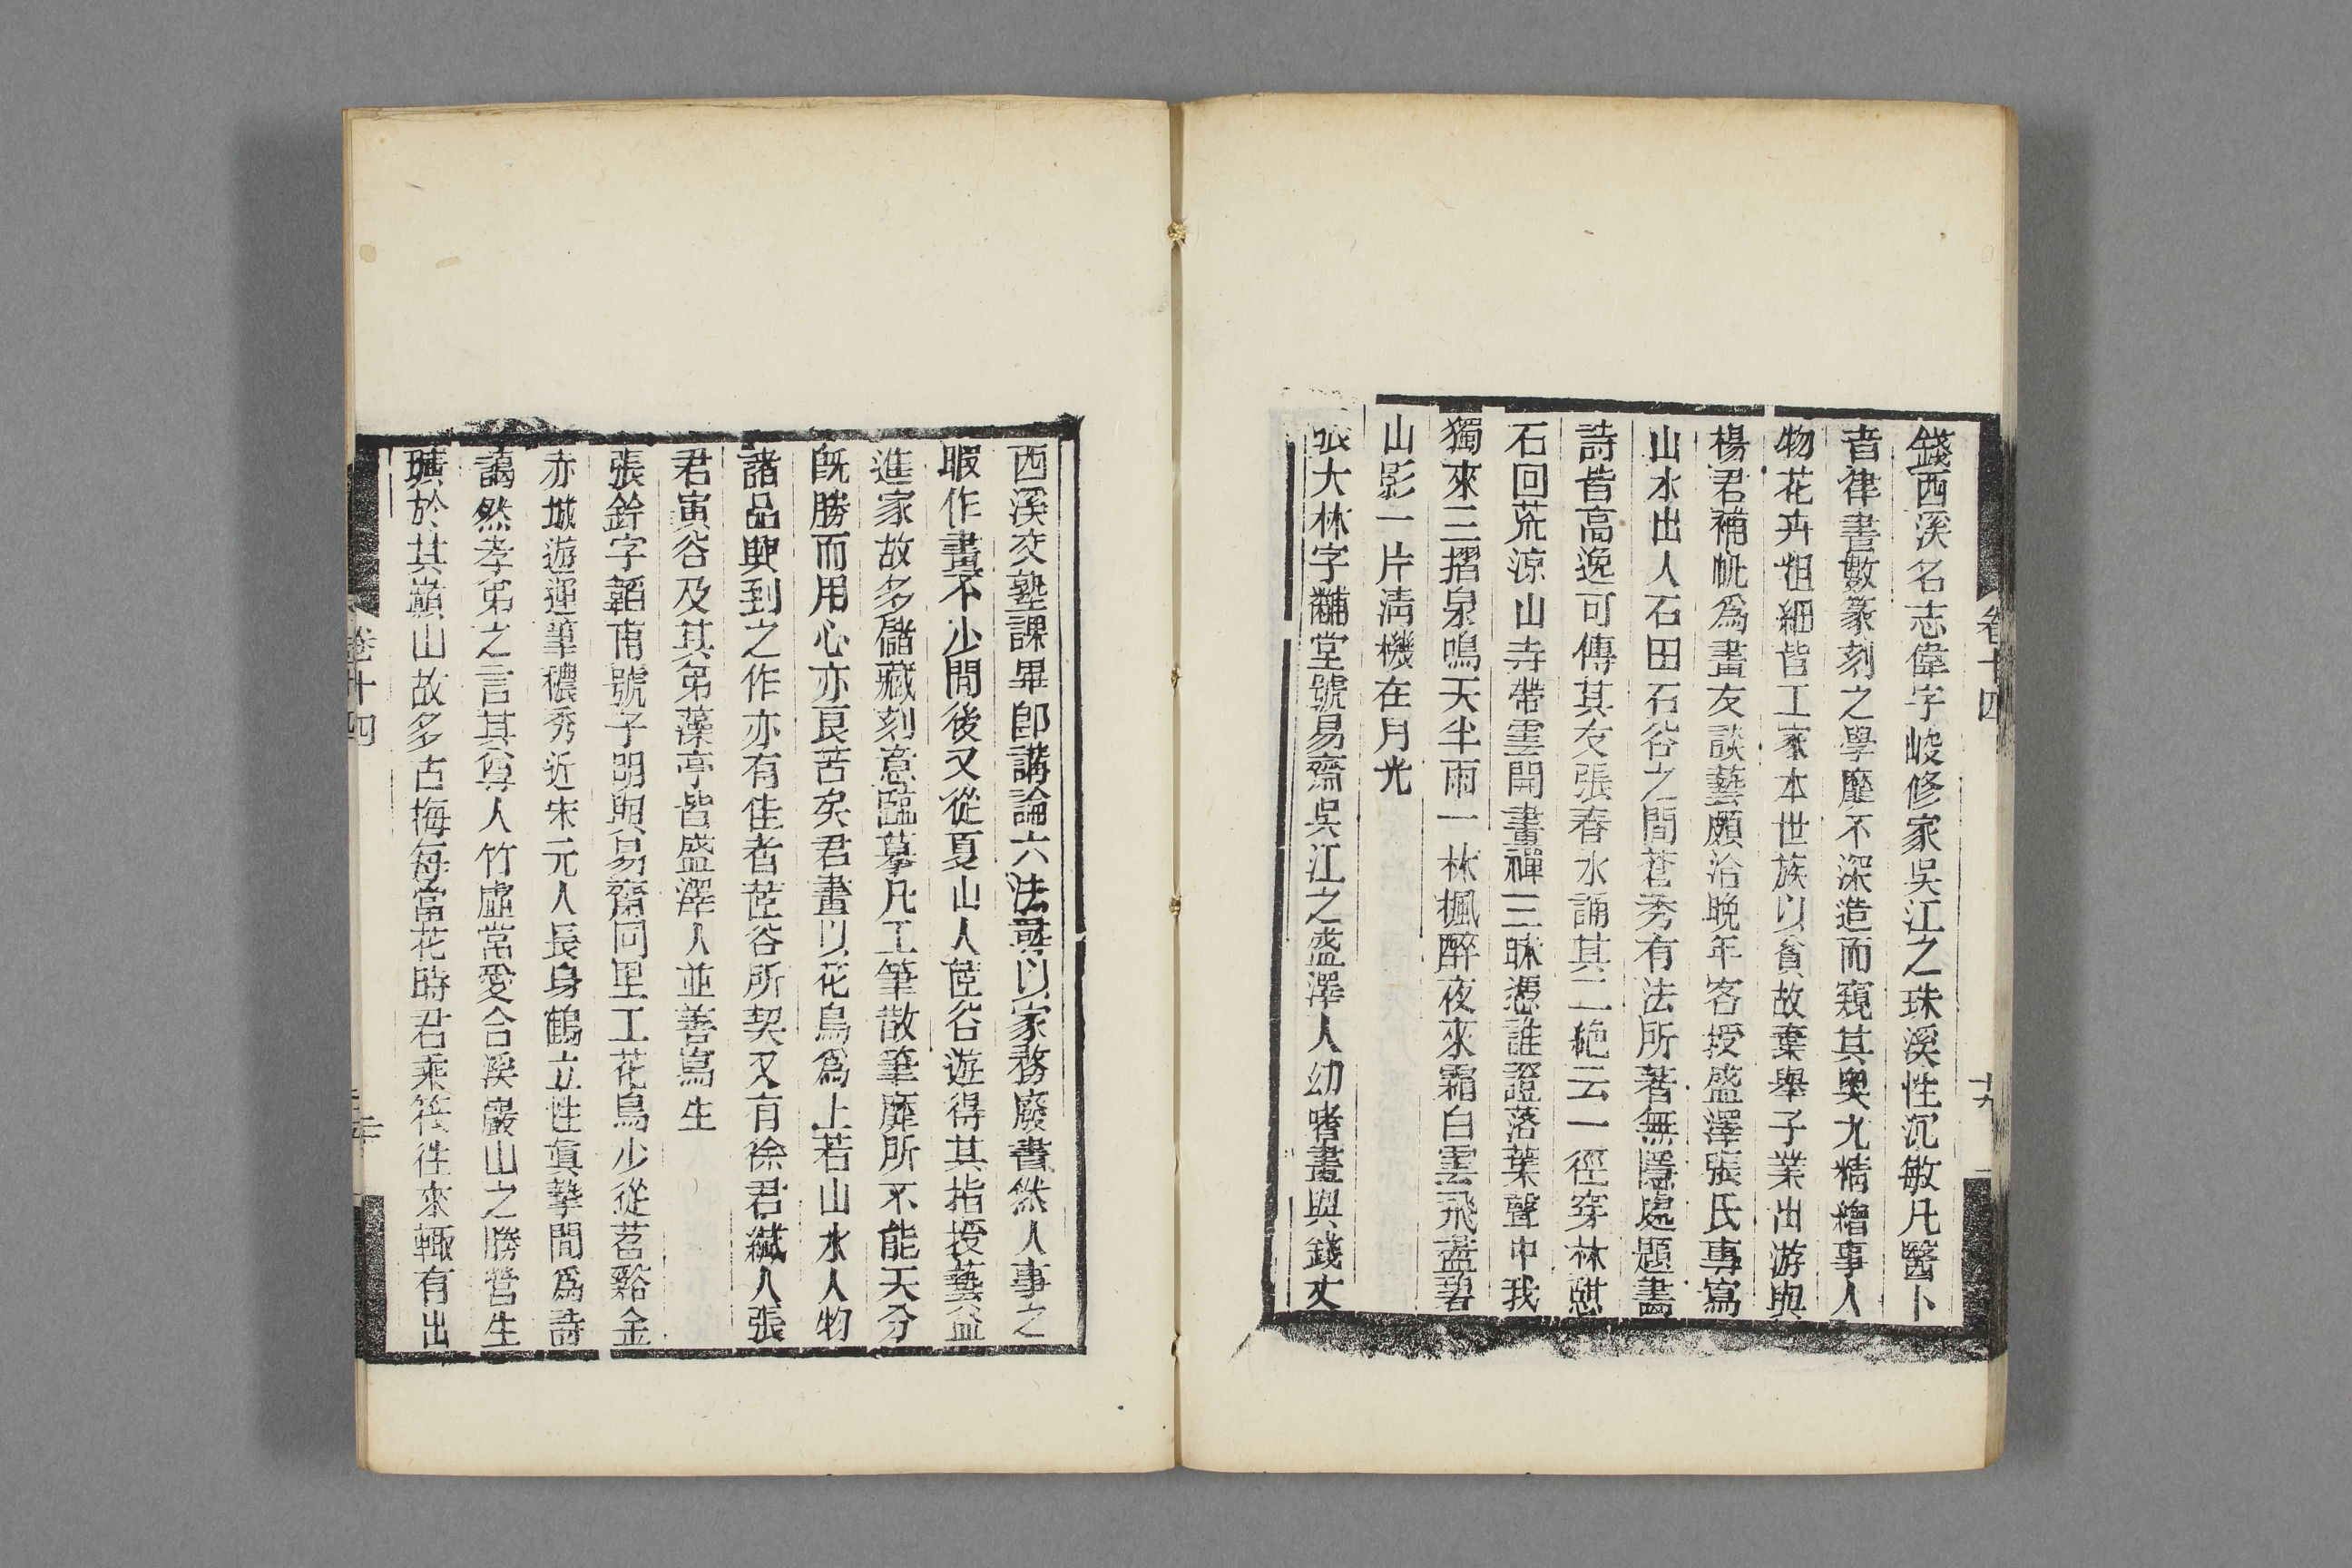 錢西溪名志偉字峻修家吳江之珠溪性沉敏凡醫卜
音律書數篆刻之學靡不深造而窺其奧尤精繪事人
物花卉粗細皆工家本世族以貧故棄舉子業出游與
楊君補帆爲畫友談藝頗洽晚年客授盛澤張氏專寫
山水出入石田石谷之間蒼秀有法所著無隱處題畫
詩皆高逸可傳其友張春水誦其二絶云一徑穿林憇
石回荒涼山寺帶雲開畫禪三昧憑誰證落葉聲中我
獨來三摺泉鳴天半雨一林楓醉夜來霜白雲飛盡碧
山影一片淸機在月光
張大林字黼堂號易齋吳江之盛澤人幼嗜畫與錢丈
卷十四
十九
西溪交塾課畢卽講論六法尋以家務廢書然人事之
暇作畫不少閒後又從夏山人茝谷遊得其指授藝益
進家故多儲藏刻意臨摹凡工筆散筆靡所不能天分
旣勝而用心亦良苦矣君畫以花鳥爲上若山水人物
諸品興到之作亦有佳者茝谷所契又有徐君緘人張
君寅谷及其弟藻亭皆盛澤人並善寫生
張鉾字韜甫號子明與易齋同里工花鳥少從苕谿金
赤城遊運筆穠秀近宋元人長身鶴立性眞摯間爲詩
藹然孝弟之言其尊人竹虛常愛合溪巖山之勝營生
壙於其巔山故多古梅每當花時君乘筏往來輒有出
卷十四
二十